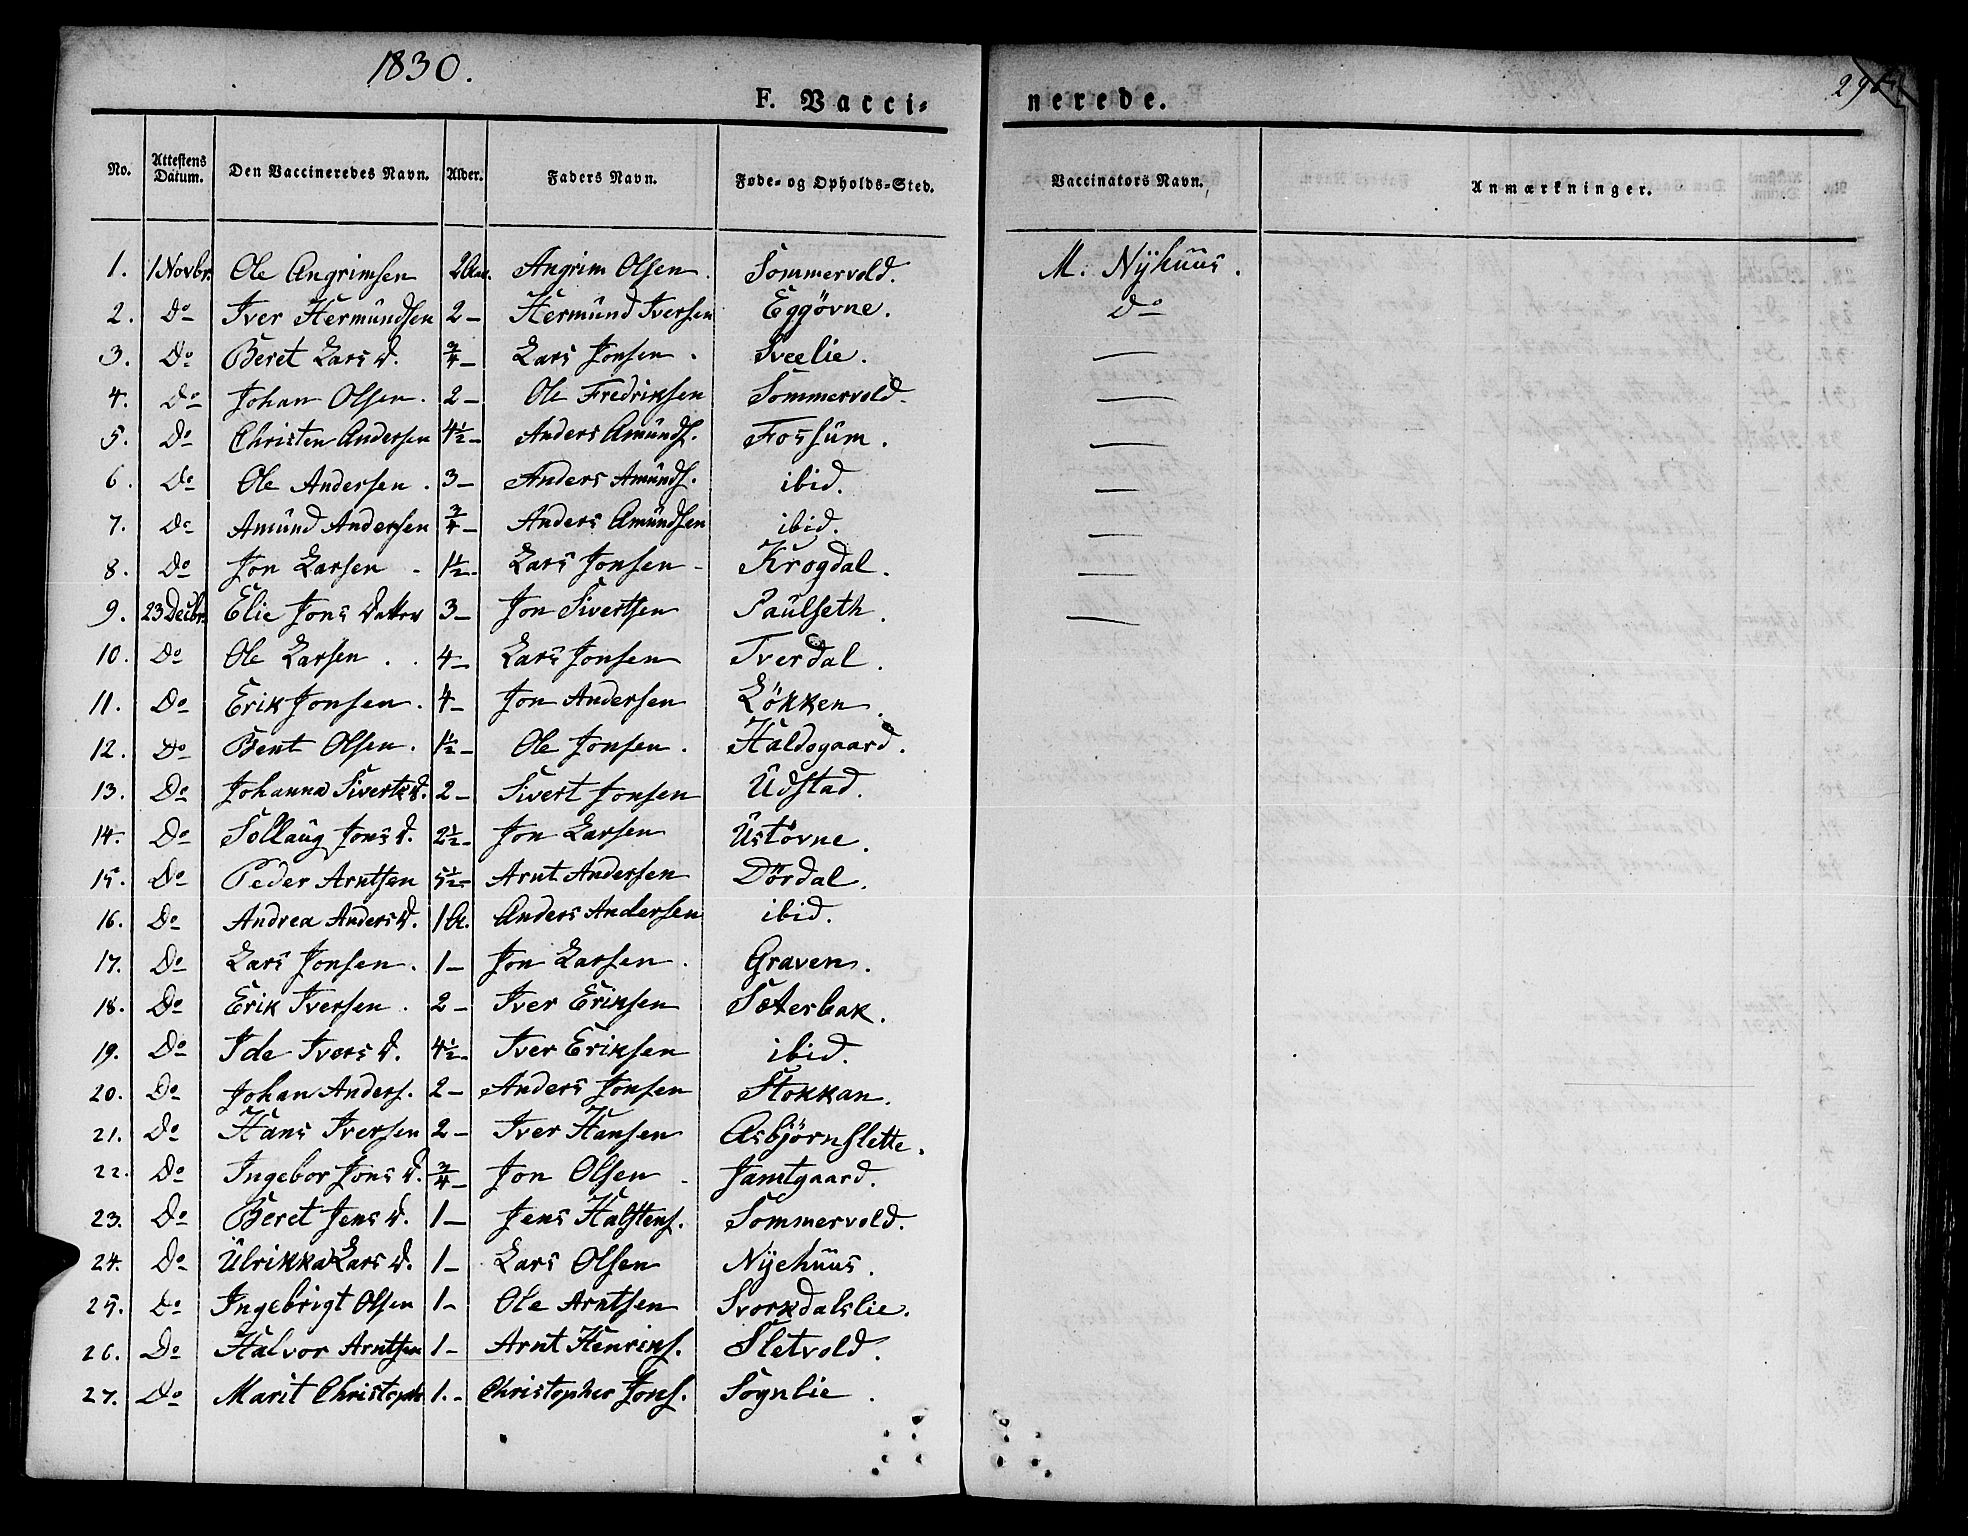 1830.
F. Vacci-
nerede.
No. Attestens Datum. Den Vaccineredes Navn. Alder. Faders Navn. Føde- og Opholds-Sted. Vaccinators Navn. Anmærkninger.
1. 1 Novbr. Ole Angrimsen 2 Aar. Angrim Olsen. Sommervold. M: Nÿhuus.
2. Do Iver Hermundsen 2 – Hermund Iversen Eggövne. Do
3. Do Beret Lars D. 3/4 – Lars Jonsen. Sveelie. —
4. Do Johan Olsen. 2 – Ole Fredriksen Sommervold. —
5. Do Christen Andersen 4½ – Anders Amunds. Fossum. —
6. Do Ole Andersen. 3 – Anders Amunds. ibid. —
7. Do Amund Andersen 3/4 – Anders Amundsen ibid. —
8. Do Jon Larsen 1½ – Lars Jonsen Krogdal. —
9. 23 Decbr. Elie Jons Datter 3 – Jon Sivertsen Paulseth. —
10. Do Ole Larsen . . 4 – Lars Jonsen Tverdal.
11. Do Erik Jonsen. 4 – Jon Andersen Lökken.
12. Do Bent Olsen. 1½ – Ole Jonsen. Haldogaard.
13. Do Johanna Siverts D. 2 – Sivert Jonsen Udstad.
14. Do Sollaug Jons D. 2½ – Jon Larsen Ustövne.
15. Do Peder Arntsen 5½ – Arnt Andersen Dördal.
16. Do Andrea Anders D. 1 A. Anders Andersen ibid.
17. Do Lars Jonsen. 1 – Jon Larsen. Graven.
18. Do Erik Iversen. 2 – Iver Eriksen Sæterbak.
19. Do Ide Ivers D. 4½ – Iver Eriksen ibid.
20. Do Johan Anders. 2 – Anders Jonsen Stokkan.
21. Do Hans Iversen 2 – Iver Hansen Asbjörnslette.
22. Do Ingebor Jons D. 3/4 – Jon Olsen Jamtgaard.
23. Do Beret Jens D. 1 – Jens Halstens. Sommervold.
24. Do Ulrikka Lars D. 1 – Lars Olsen Nÿehuus.
25. Do Ingebrigt Olsen 1 – Ole Arntsen Svorkdalslie.
26. Do Halvor Arntsen 1 – Arnt Henriks. Sletvold.
27. Do Marit Christoph 1. – Christopher Jons. Sognlie.